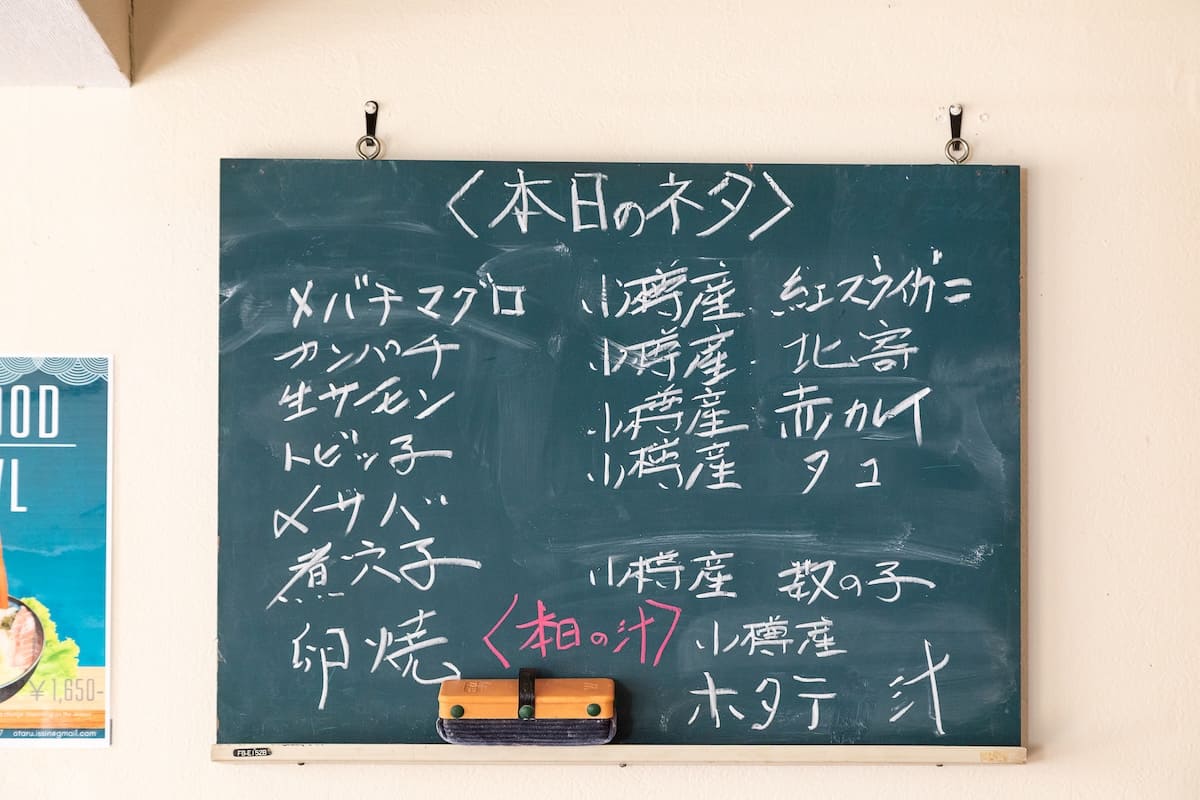 〈本日のネタ〉
メバチマグロ
カンパチ
生サーモン
トビッ子
〆サバ
煮穴子
卵焼
小樽産 紅ズワイガニ
小樽産 北寄
小樽産 赤カレイ
小樽産 タコ
小樽産 数の子
〈本日の汁〉
小樽産
ホタテ 汁
OOD
WL
¥1,650-
otaru.issin@gmail.com
FB-E152B